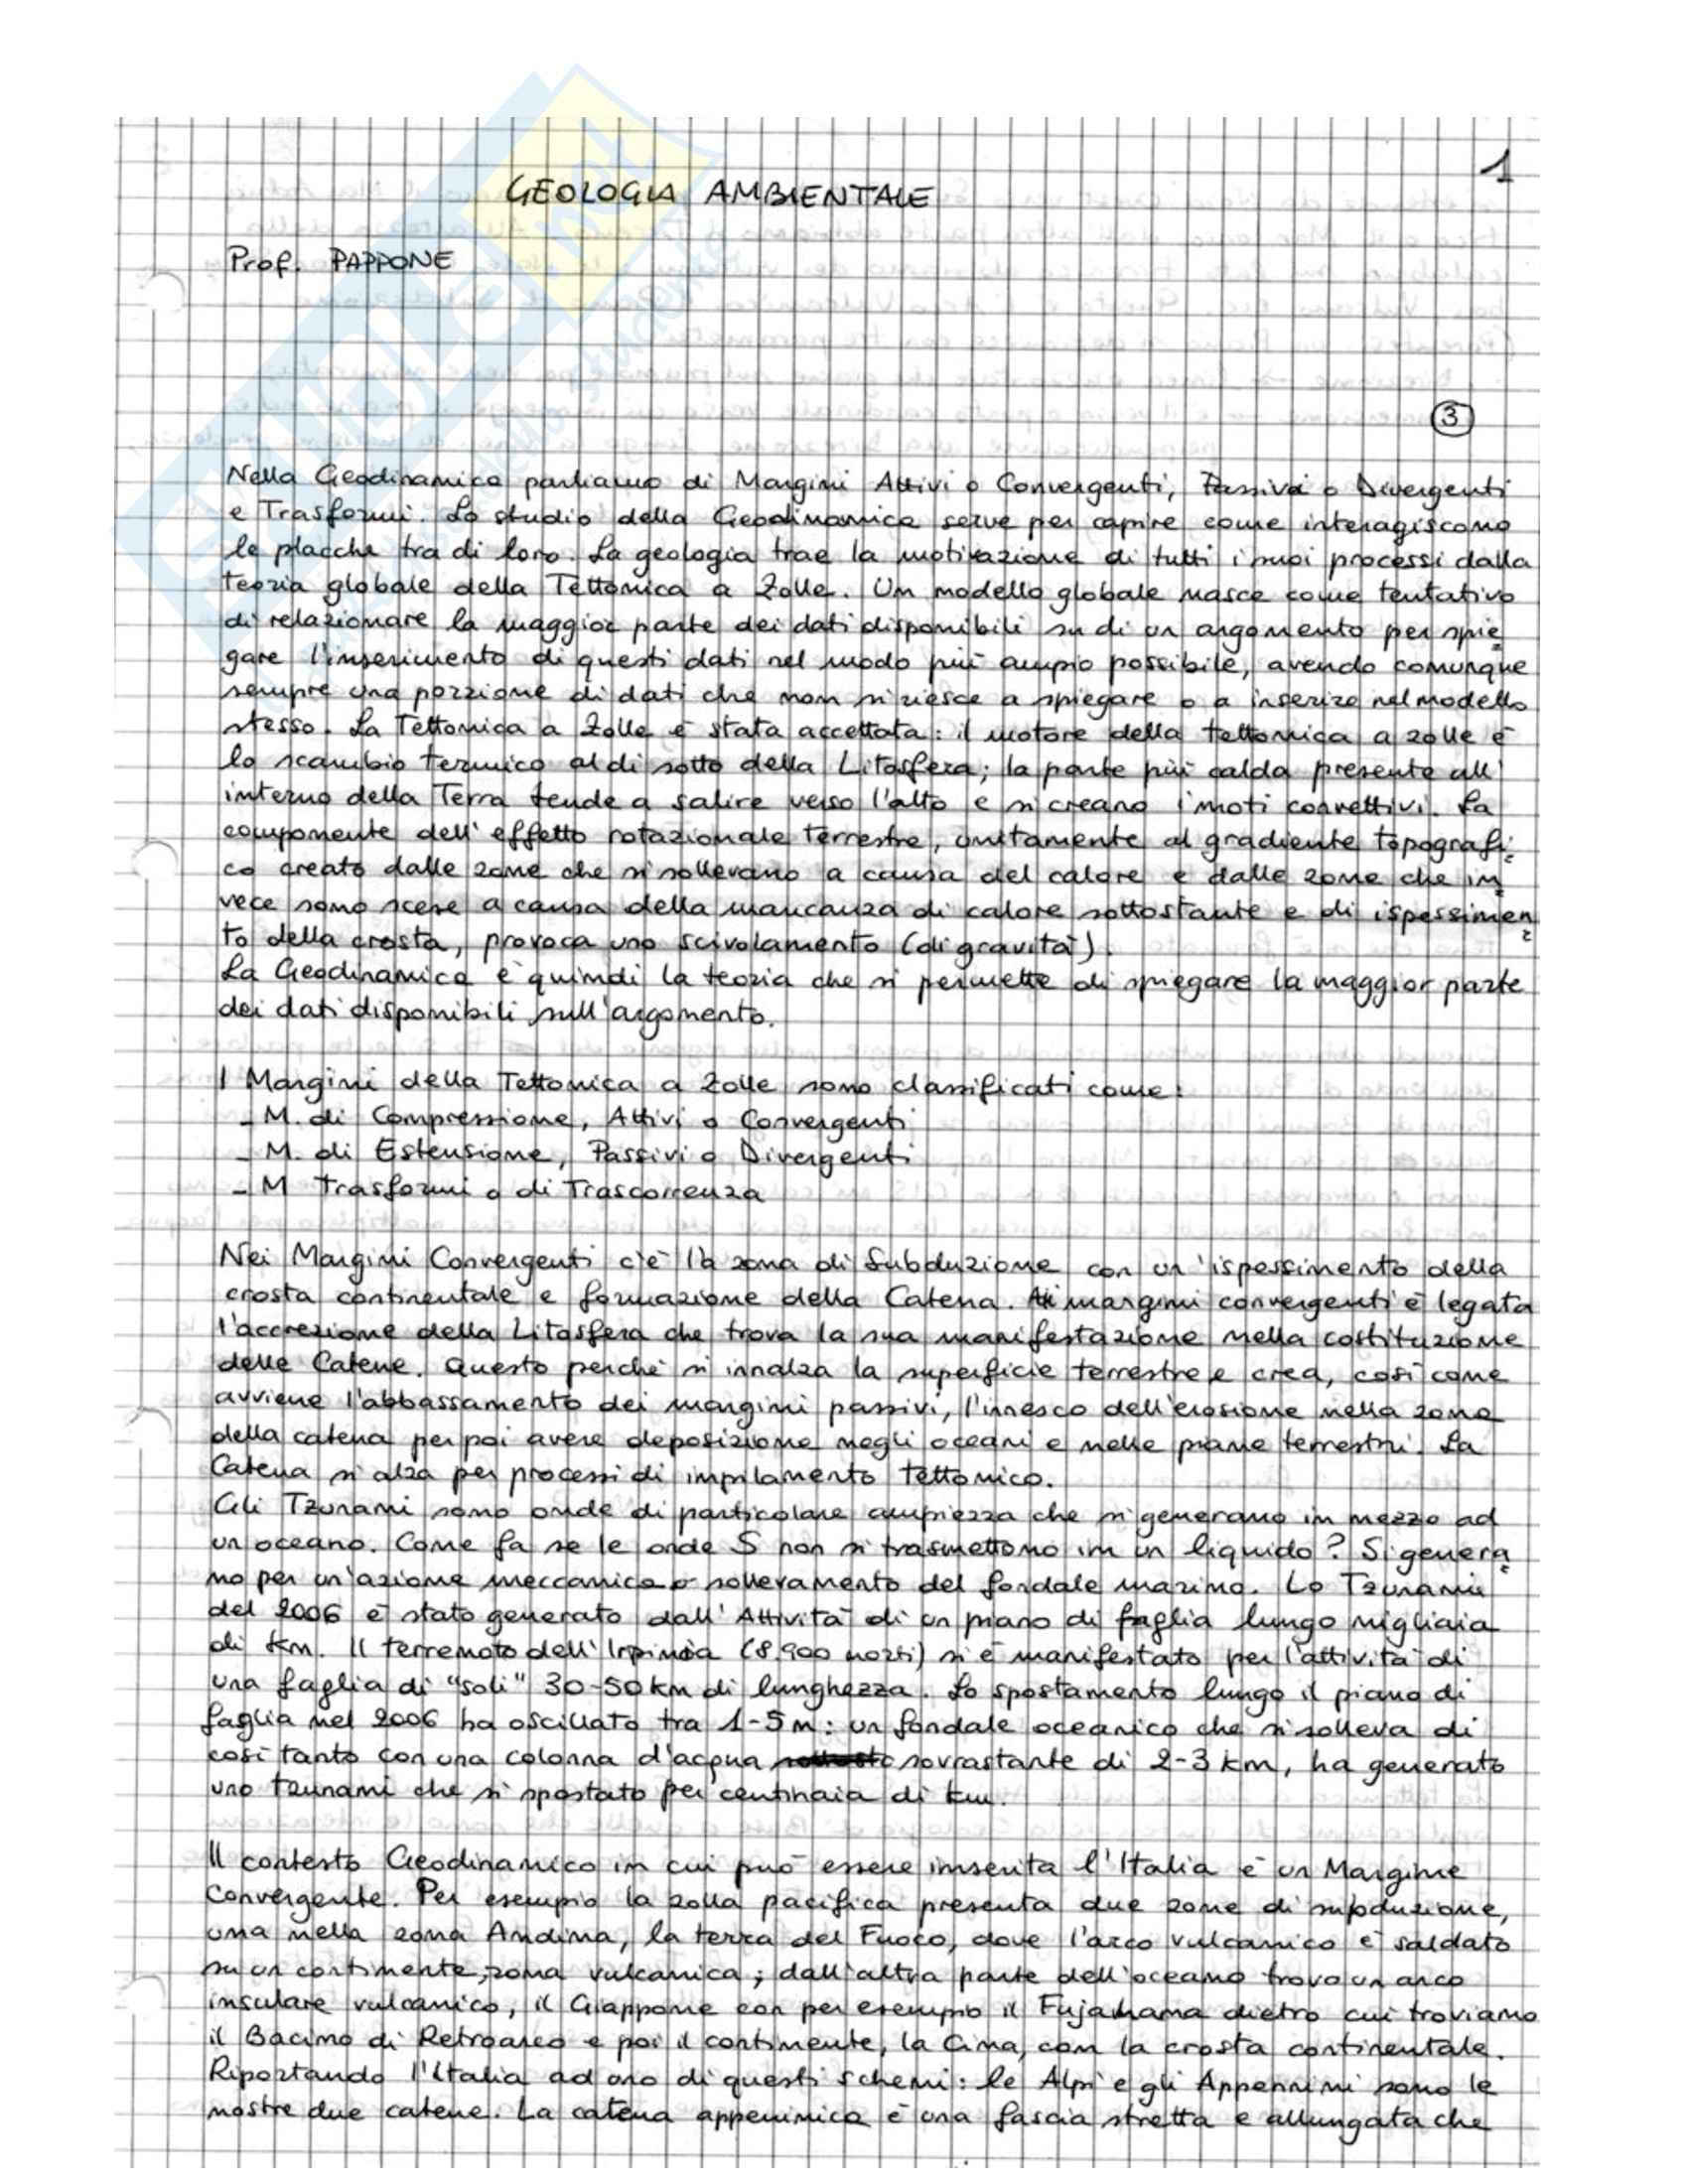 1
GEOLOGIA AMBIENTALE
Prof. PAPPONE
3
Nella Geodinamica parliamo di Margini Attivi o Convergenti, Passivi o Divergenti
e Trasformi. Lo studio della Geodinamica serve per capire come interagiscono
le placche tra di loro. La geologia trae la motivazione di tutti i suoi processi dalla
teoria globale della Tettonica a Zolle. Un modello globale nasce come tentativo
di relazionare la maggior parte dei dati disponibili su di un argomento per spie
gare l'inserimento di questi dati nel modo più ampio possibile, avendo comunque
sempre una porzione di dati che non si riesce a spiegare o a inserire nel modello
stesso. La Tettonica a Zolle è stata accettata: il motore della tettonica a zolle è
lo scambio termico al di sotto della Litosfera; la parte più calda presente all'
interno della Terra tende a salire verso l'alto e si creano i moti convettivi. La
componente dell'effetto rotazionale terrestre, unitamente al gradiente topografi
co creato dalle zone che si sollevano a causa del calore e dalle zone che in
vece sono scese a causa della mancanza di calore sottostante e di ispessimen
to della crosta, provoca uno scivolamento (di gravità).
La Geodinamica è quindi la teoria che si permette di spiegare la maggior parte
dei dati disponibili sull'argomento.
I Margini della Tettonica a Zolle sono classificati come:
- M. di Compressione, Attivi o Convergenti
- M. di Estensione, Passivi o Divergenti
- M Trasformi o di Trascorrenza
Nei Margini Convergenti c'è la zona di Subduzione con un'ispessimento della
crosta continentale e formazione della Catena. Ai margini convergenti è legata
l'accrezione della Litosfera che trova la sua manifestazione nella costituzione
delle Catene. Questo perché si innalza la superficie terrestre e crea, così come
avviene l'abbassamento dei margini passivi, l'innesco dell'erosione nella zona
della catena per poi avere deposizione negli oceani e nelle piane terrestri. La
Catena si alza per processi di impilamento tettonico.
Gli Tzunami sono onde di particolare ampiezza che si generano in mezzo ad
un oceano. Come fa se le onde S non si trasmettono in un liquido? Si genera
no per un'azione meccanica o sollevamento del fondale marino. Lo Tzunami
del 2006 è stato generato dall'Attività di un piano di faglia lungo migliaia
di km. Il terremoto dell'Irpinia (8.900 morti) si è manifestato per l'attività di
una faglia di "soli" 30-50 km di lunghezza. Lo spostamento lungo il piano di
faglia nel 2006 ha oscillato tra 1-5 m: un fondale oceanico che si solleva di
così tanto con una colonna d'acqua sovrastante di 2-3 km, ha generato
uno tzunami che si spostato per centinaia di km.
Il contesto Geodinamico in cui può essere inserita l'Italia è un Margine
Convergente. Per esempio la zolla pacifica presenta due zone di subduzione,
una nella zona Andina, la terra del Fuoco, dove l'arco vulcanico è saldato
su un continente, zona vulcanica; dall'altra parte dell'oceano trovo un arco
insulare vulcanico, il Giappone con per esempio il Fujahama dietro cui troviamo
il Bacino di Retroarco e poi il continente, la Cina, con la crosta continentale.
Riportando l'Italia ad uno di questi schemi: le Alpi e gli Appennini sono le
nostre due catene. La catena appenninica è una fascia stretta e allungata che